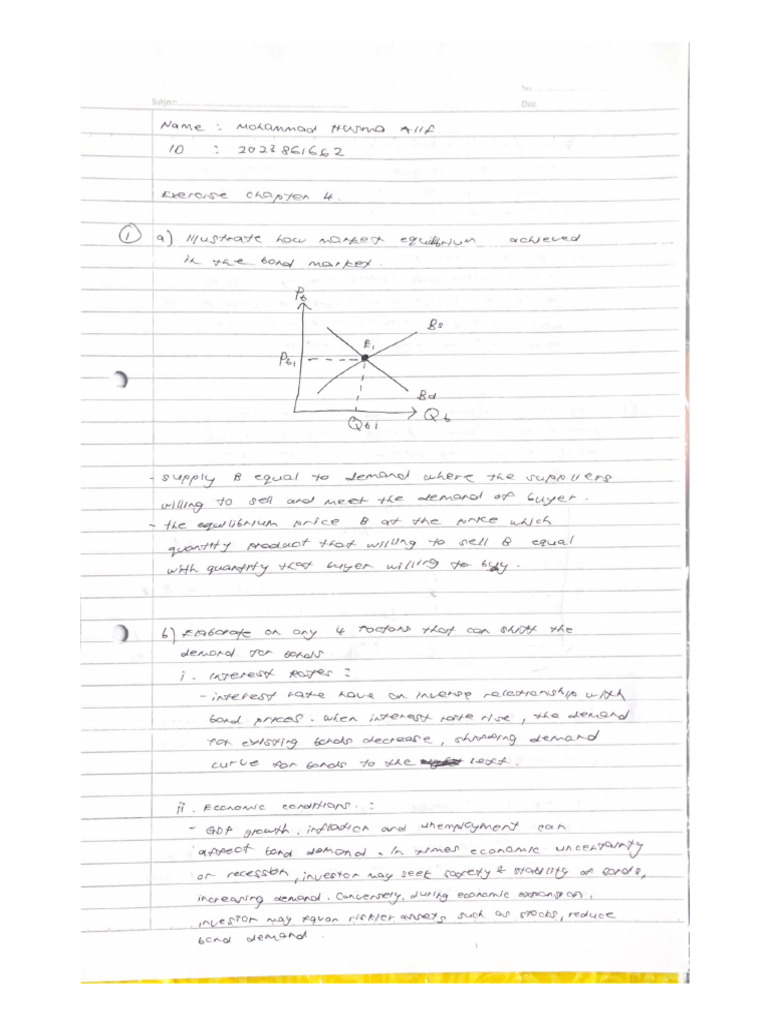 No:
Subject:
Date
Name : Mohammad Husma Alif
ID : 2023861662
Exercise chapter 4.
1 a) Illustrate how market equilibrium achieved
in the bond market.
Pb
Bs
E1
Pb1
Bd
Qb
Qb1
- supply is equal to demand where the suppliers
willing to sell and meet the demand of buyer.
- the equilibrium price is at the price which
quantity product that willing to sell is equal
with quantity that buyer willing to buy.
b) Elaborate on any 4 factors that can shift the
demand for bonds
i. interest rates :
- interest rate have an inverse relationship with
bond prices. when interest rate rise, the demand
for existing bonds decrease, shifting demand
curve for bonds to the left.
ii. Economic conditions. :
- GDP growth, inflation and unemployment can
affect bond demand. In times economic uncertainty
or recession, investor may seek safety & stability of bonds,
increasing demand. Conversely, during economic expansion,
investor may riskier assets, such as stocks, reduce
bond demand.